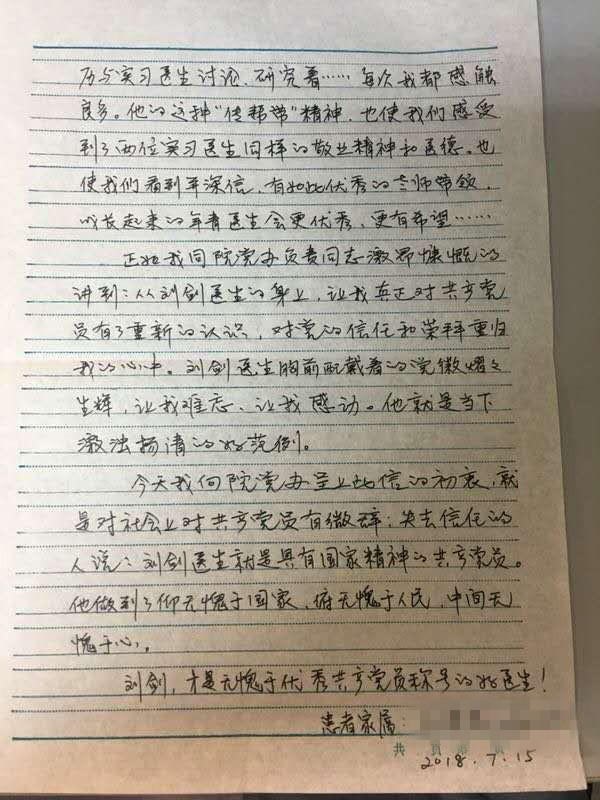 历与实习医生讨论、研究着……每次我都感触
良多。他的这种“传帮带”精神，也使我们感受
到了两位实习医生同样的敬业精神和医德。也
使我们看到并深信，有如此优秀的老师带领，
成长起来的年青医生会更优秀，更有希望……
正如我向院党办负责同志激昂慷慨的
讲到：从刘剑医生的身上，让我真正对共产党
员有了重新的认识，对党的信任和崇拜重归
我的心中。刘剑医生胸前配戴着的党徽熠熠
生辉，让我难忘、让我感动。他就是当下
激浊扬清的好范例。
今天我向院党办呈上此信的初衷，就
是对社会上对共产党员有微辞；失去信任的
人说：刘剑医生就是具有国家精神的共产党员。
他做到了仰无愧于国家，俯无愧于人民，中间无
愧于心。
刘剑，才是无愧于优秀共产党员称号的好医生！
患者家属：
共 页 第 页
2018.7.15